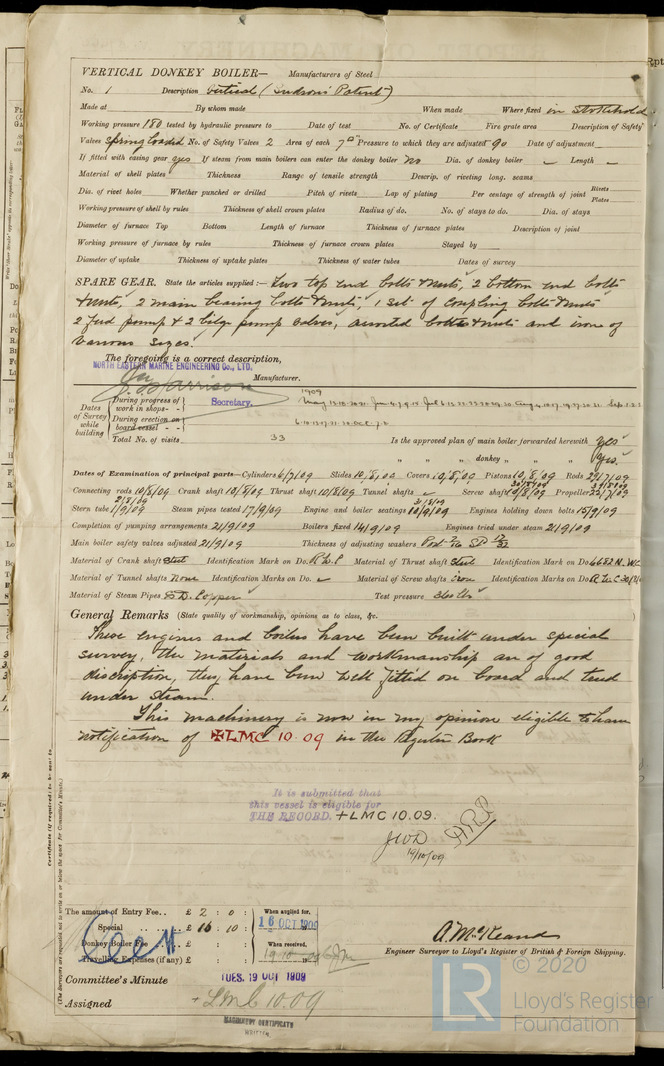 VERTICAL DONKEY BOILER— Manufacturers of Steel
No. 1 Description Vertical ( Patent)
Made at By whom made When made Where fixed in Stokehold
Working pressure 180 tested by hydraulic pressure to Date of test No. of Certificate Fire grate area Description of Safety
Valves Spring loaded No. of Safety Valves 2 Area of each 7 Pressure to which they are adjusted 90 Date of adjustment
If fitted with easing gear yes If steam from main boilers can enter the donkey boiler no Dia. of donkey boiler – Length –
Material of shell plates Thickness Range of tensile strength Descrip. of riveting long. seams
Dia. of rivet holes Whether punched or drilled Pitch of rivets Lap of plating Per centage of strength of joint Rivets Plates
Working pressure of shell by rules Thickness of shell crown plates Radius of do. No. of stays to do. Dia. of stays
Diameter of furnace Top Bottom Length of furnace Thickness of furnace plates Description of joint
Working pressure of furnace by rules Thickness of furnace crown plates Stayed by
Diameter of uptake Thickness of uptake plates Thickness of water tubes Dates of survey
SPARE GEAR. State the articles supplied:— Two top end bolts & nuts, 2 bottom end bolts
& nuts, 2 main bearing bolts & nuts, 1 Set of Coupling bolts & nuts
2 feed pump & 2 bilge pump valves, assorted bolts & nuts and iron of
various sizes.
The foregoing is a correct description,
NORTH EASTERN MARINE ENGINEERING Co., LTD.
Harrison Manufacturer.
Secretary.
Dates of Survey while building
During progress of work in shops - - 1909
During erection on board vessel - - -
Total No. of visits 33
Is the approved plan of main boiler forwarded herewith yes
" " " donkey " " " yes.
Dates of Examination of principal parts—Cylinders 6/7/09 Slides 10/8/09 Covers 10/8/09 Pistons 10/8/09 Rods 22/7/09
Connecting rods 10/8/09 Crank shaft 10/8/09 Thrust shaft 10/8/09 Tunnel shafts Screw shaft 10/8/09 Propeller 22/7/09
Stern tube 1/9/09 Steam pipes tested 17/9/09 Engine and boiler seatings 10/9/09 Engines holding down bolts 15/9/09
Completion of pumping arrangements 21/9/09 Boilers fixed 14/9/09 Engines tried under steam 21/9/09
Main boiler safety valves adjusted 21/9/09 Thickness of adjusting washers Port 7/16
Material of Crank shaft Steel Identification Mark on Do. Material of Thrust shaft Steel Identification Mark on Do. 4682
Material of Tunnel shafts None Identification Marks on Do. Material of Screw shafts Iron Identification Marks on Do.
Material of Steam Pipes S.D. Copper Test pressure 360 lbs
General Remarks (State quality of workmanship, opinions as to class, &c.
These engines and boilers have been built under special
survey, the materials and workmanship are of good
discription, they have been well fitted on board and tried
under steam.
This machinery is now in my opinion eligible to have
notification of ✠LMC 10.09 in the Register Book
It is submitted that
this vessel is eligible for
THE RECORD. +LMC 10.09.
JWD
19/10/09
Certificate (if required) to be sent to
(The Surveyors are requested not to write on or below the space for Committee's Minute.)
The amount of Entry Fee.. £ 2 : 0 : When applied for,
Special .. .. £ 16 : 10 : 16 OCT 1909
Donkey Boiler Fee .. .. £ : : When received,
Travelling Expenses (if any) £ : :
A. McKeand
Engineer Surveyor to Lloyd's Register of British & Foreign Shipping.
Committee's Minute TUES. 19 OCT 1909
Assigned + LMC 10.09
MACHINERY CERTIFICATE
WRITTEN
© 2020
LR Lloyd's Register
Foundation